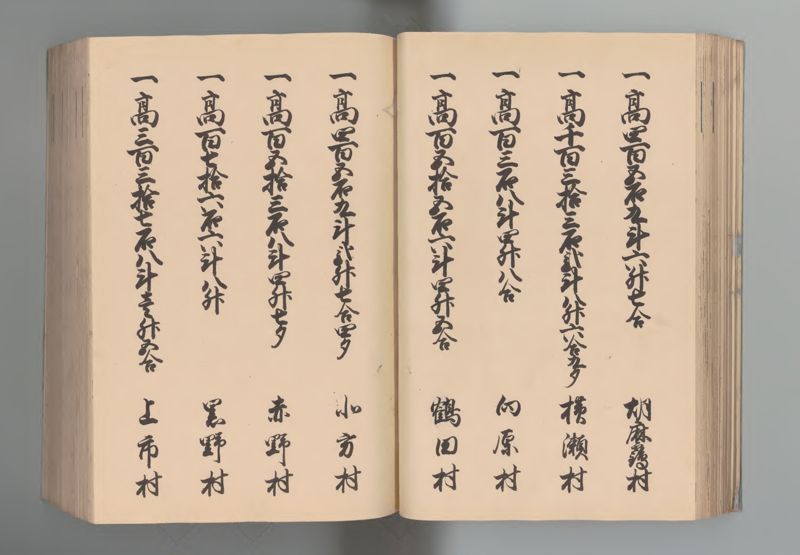 一高四百五石九斗六升七合 胡麻鶴村
一高千百三拾三石弐斗八升六合九夕 横瀬村
一高百三石八斗四升八合 向原村
一高百五拾五石六斗四升五合 鶴田村
一高四百五石九斗弐升七合四夕 北方村
一高百五拾三石八斗四升七夕 赤野村
一高百七拾六石六斗八升 黒野村
一高三百三拾七石八斗壱升五合 上市村